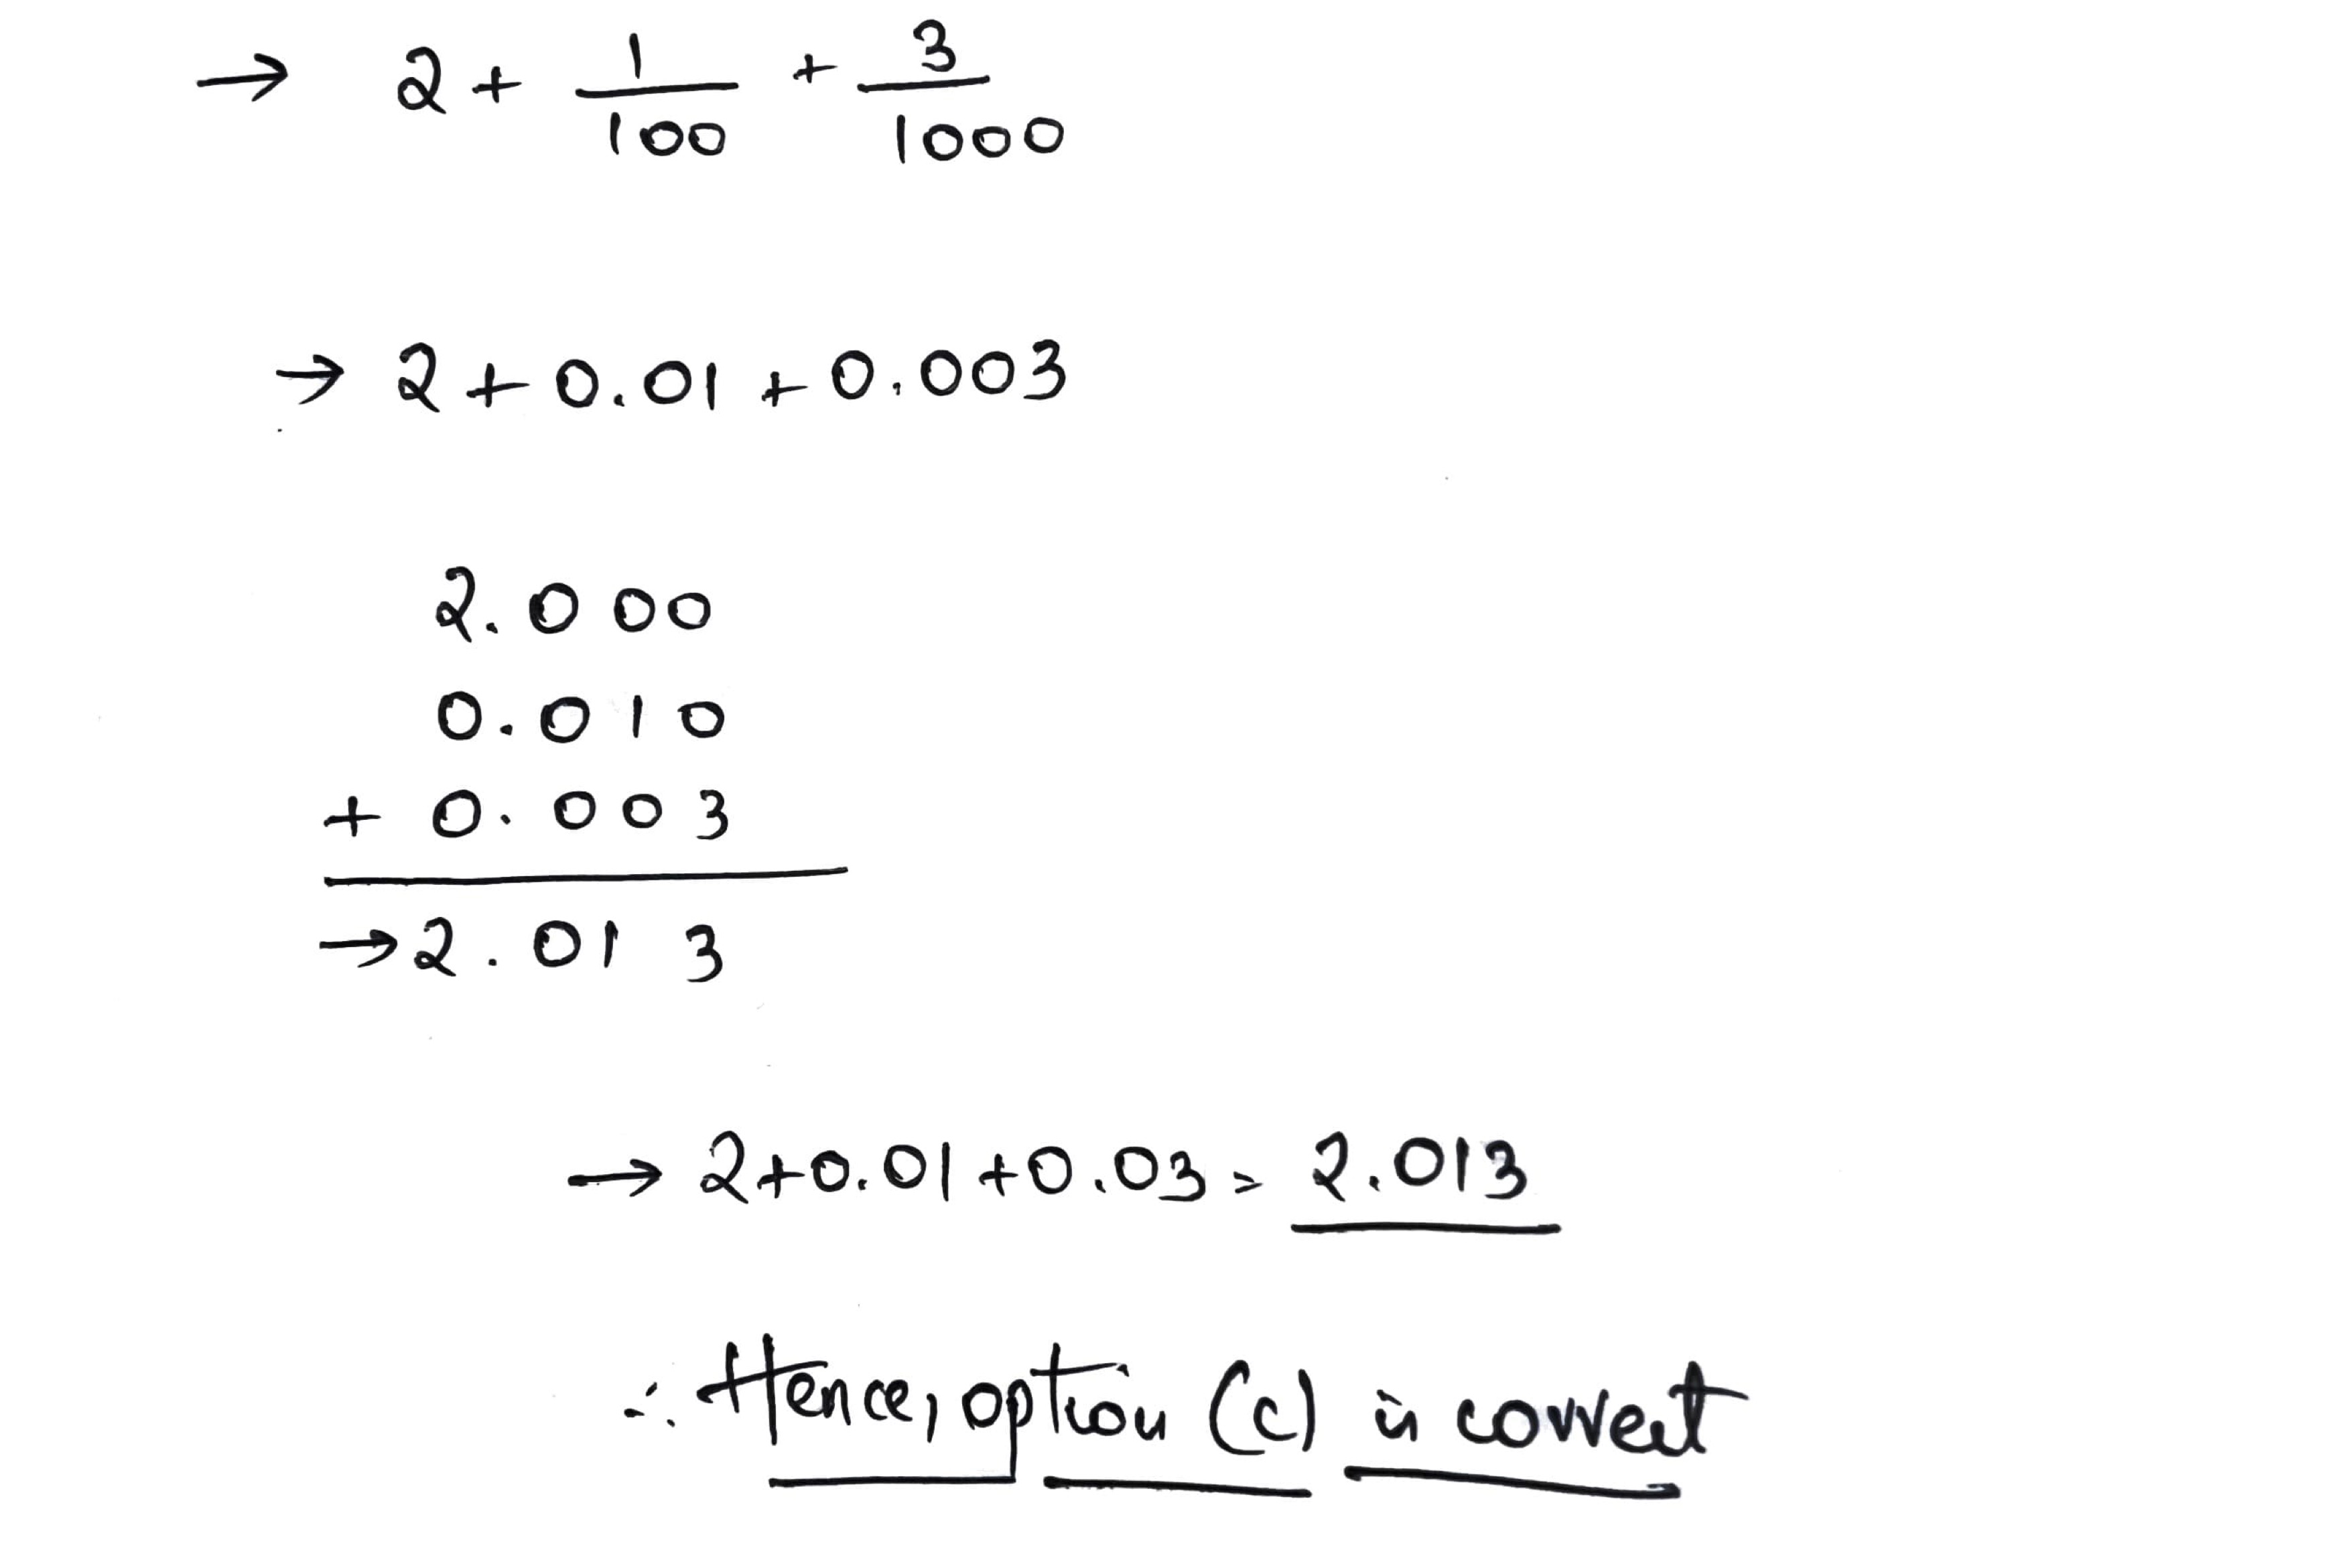 → 2 + 1/100 + 3/1000
→ 2 + 0.01 + 0.003
2.000
0.010
+ 0.003
→ 2.013
→ 2+0.01+0.03 = 2.013
∴ Hence, option (c) is correct